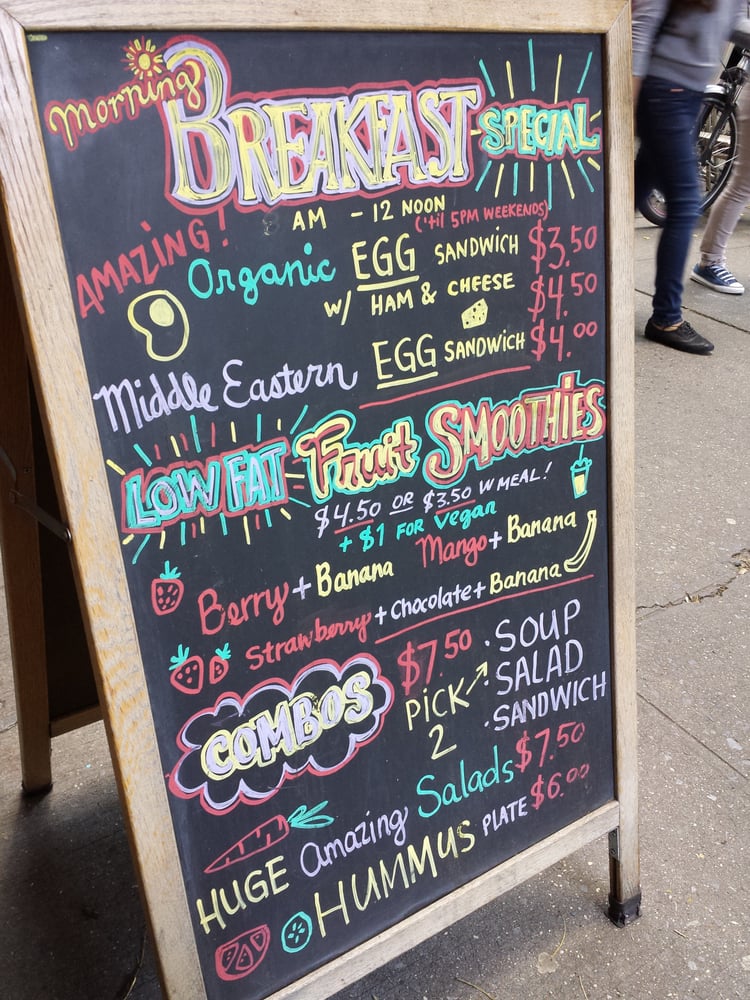 Morning BREAKFAST SPECIAL
AM - 12 NOON
('til 5PM WEEKENDS)
AMAZING! Organic EGG SANDWICH $3.50
w/ HAM & CHEESE $4.50
Middle Eastern EGG SANDWICH $4.00
LOW FAT Fruit SMOOTHIES
$4.50 OR $3.50 W MEAL!
+ $1 FOR Vegan
Berry + Banana Mango + Banana
Strawberry + Chocolate + Banana
COMBOS $7.50 PiCK 2
· SOUP
· SALAD
· SANDWICH
HUGE Amazing Salads $7.50
HUMMUS PLATE $6.00